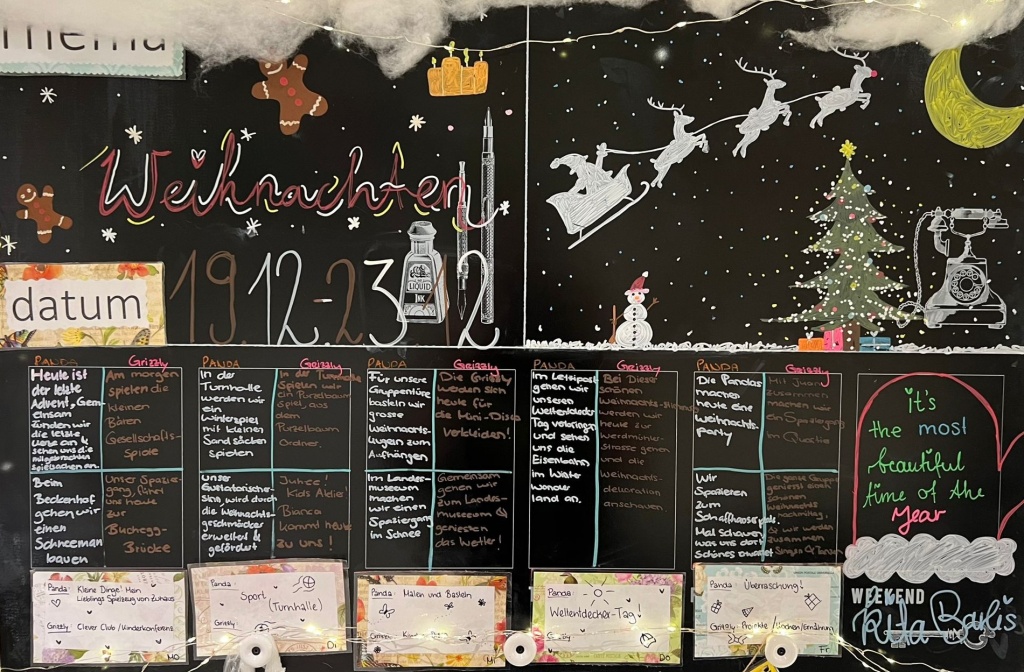 Thema
Weihnachten
datum
19.12.-23.12
LIQUID
INK
PANDA
Grizzly
Heute ist
der letzte
Advent, Gem-
einsam
zünden wir
die letzte
Kerze an &
sehen uns die
mitgebrachten
Spielsachen an.
Am morgen
spielen die
kleinen
Bären
Gesellschafts-
spiele
Beim
Beckenhof
gehen wir
einen
Schneeman
bauen
Unser Spazie-
gang, führt
uns heute
zur
Buchegg-
Brücke
PANDA
Grizzly
In der
Turnhalle
werden wir
ein
winterspiel
mit kleinen
Sandsäcken
spielen
In der Turnhalle
Spielen wir
ein Purzelbaum
Spiel, aus
dem
Purzelbaum
Ordner.
unser
Guetalatorische
sinn wird durch
die Weihnachts-
geschmäcker
erweitert &
gefördert
Juhee!
Kids Aktie!
Bianca
kommt heute
zu uns!
PANDA
Grizzly
Für unsere
Gruppentüre
basteln wir
grosse
Weihnachts-
kugeln zum
Aufhängen
Die Grizzly
werden sich
heute für
die Mini-Disco
verkleiden!
Im Landes-
museum
machen
wir einen
Spaziergang
im Schnee
Gemeinsam
gehen wir
zum Landes-
museeum &
geniesten
das Wetter!
PANDA
Grizzly
Im Lettipost
gehen wir
unseren
Weltentdecker
Tag verbringen
und sehen
uns die
Eisenbahn
im Winter
wonder
land an.
Bei Diese
schönen
Weihnachts-Stimmung
werden wir
heute zur
Werdmühle-
Strasse gehen
und die
Weihnachts-
dekoration
anschauen.
PANDA
Grizzly
Die Pandas
machen
heute eine
Weihnachts-
party
Mit Juany
zusammen
machen wir
ein Spaziergang
im Quartie
Wir
Spazieren
zum
Schaffhauserplatz.
Mal schauen
was uns dort
Schönes erwartet
Die ganze Gruppe
geniest einen
schönen
Weihnachts
nachmittag!
& wir werden
zusammen
Singen & Tanzen
it's
the most
beautiful
time of the
Year
WEEKEND
Rita Bakis
Panda: Kleine Dinge! Mein
Lieblings Spielzeug von Zuhaus
Grizzly: Clever Club /Kinderkonferenz
Mo
Sport
(Turnhalle)
Panda:
Grizzly:
Di
Panda: Malen und Basteln
Grizzly:
Mi
Panda:
Weltentdecker-Tag!
Grizzly
Do
Panda: Überraschung!
Grizzly: Projekte /Kochen/Ernährung
Fr